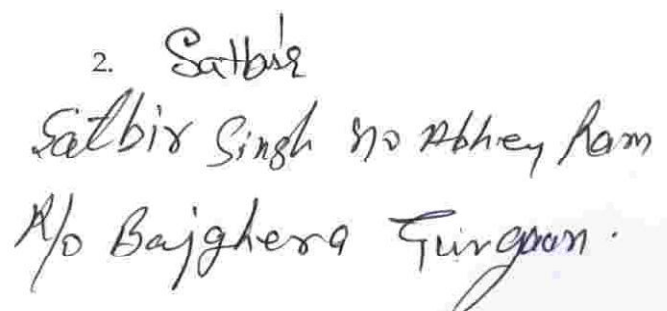 2. Satbir
Satbir Singh S/o Abhey Ram
R/o Bajghera Gurgaon.